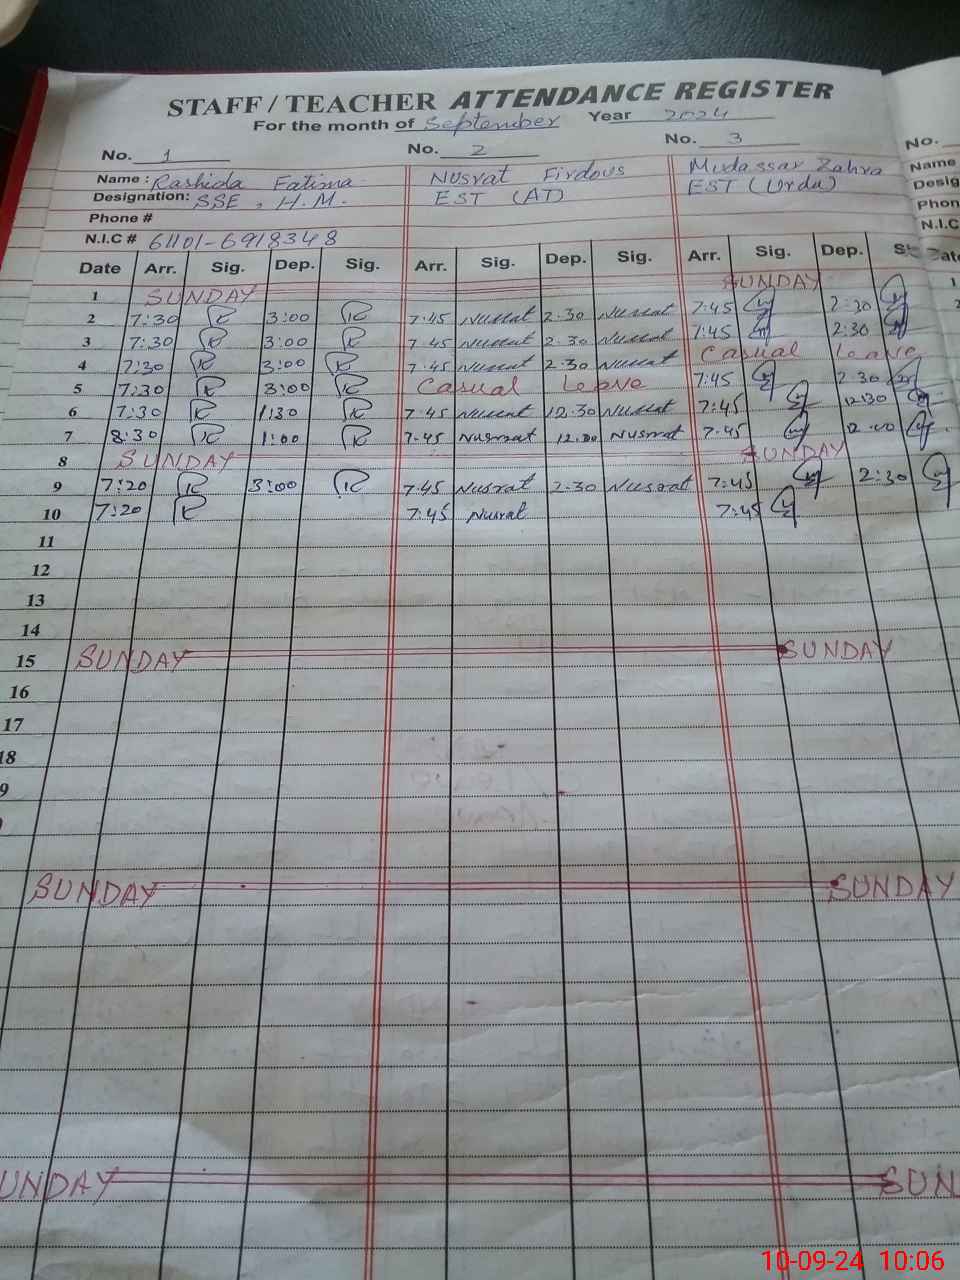 STAFF / TEACHER ATTENDANCE REGISTER
For the month of September Year 2024
No. 1 No. 2 No. 3 No.
Name: Rashida Fatima Nusrat Firdous Mudassar Zahra Name
Designation: SSE, H.M. EST (AT) EST (Urdu) Desig
Phone # Phon
N.I.C # 61101-6918348 N.I.C
Date Arr. Sig. Dep. Sig. Arr. Sig. Dep. Sig. Arr. Sig. Dep. S
1 SUNDAY SUNDAY 1
2 7:30 3:00 7:45 Nusrat 2:30 Nusrat 7:45 2:30 2
3 7:30 3:00 7:45 Nusrat 2:30 Nusrat 7:45 2:30
4 7:30 3:00 7:45 Nusrat 2:30 Nusrat Casual Leave
5 7:30 3:00 Casual Leave 7:45 2:30
6 7:30 1:30 7:45 Nusrat 12:30 Nusrat 7:45 12:30
7 8:30 1:00 7:45 Nusrat 12:00 Nusrat 7:45 12:00
8 SUNDAY SUNDAY
9 7:20 3:00 7:45 Nusrat 2:30 Nusrat 7:45 2:30
10 7:20 7:45 Nusrat 7:45
11
12
13
14
15 SUNDAY SUNDAY
16
17
18
9
SUNDAY SUNDAY
UNDAY SUN
10-09-24 10:06